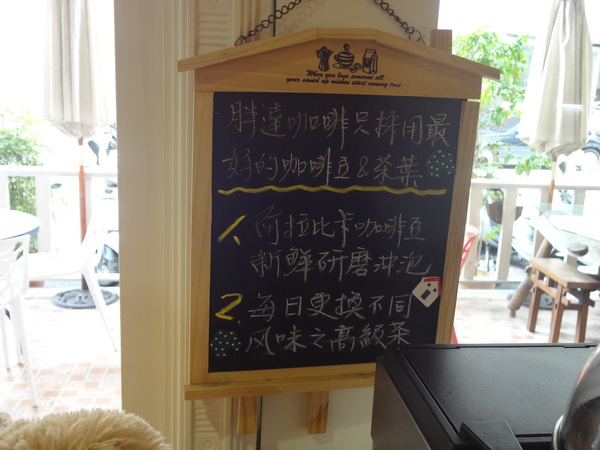 When you love someone all
your saved up wishes start coming true
胖達咖啡只採用最
好的咖啡豆&茶葉
1. 阿拉比卡咖啡豆
新鮮研磨沖泡
2. 每日更換不同
风味之高級茶